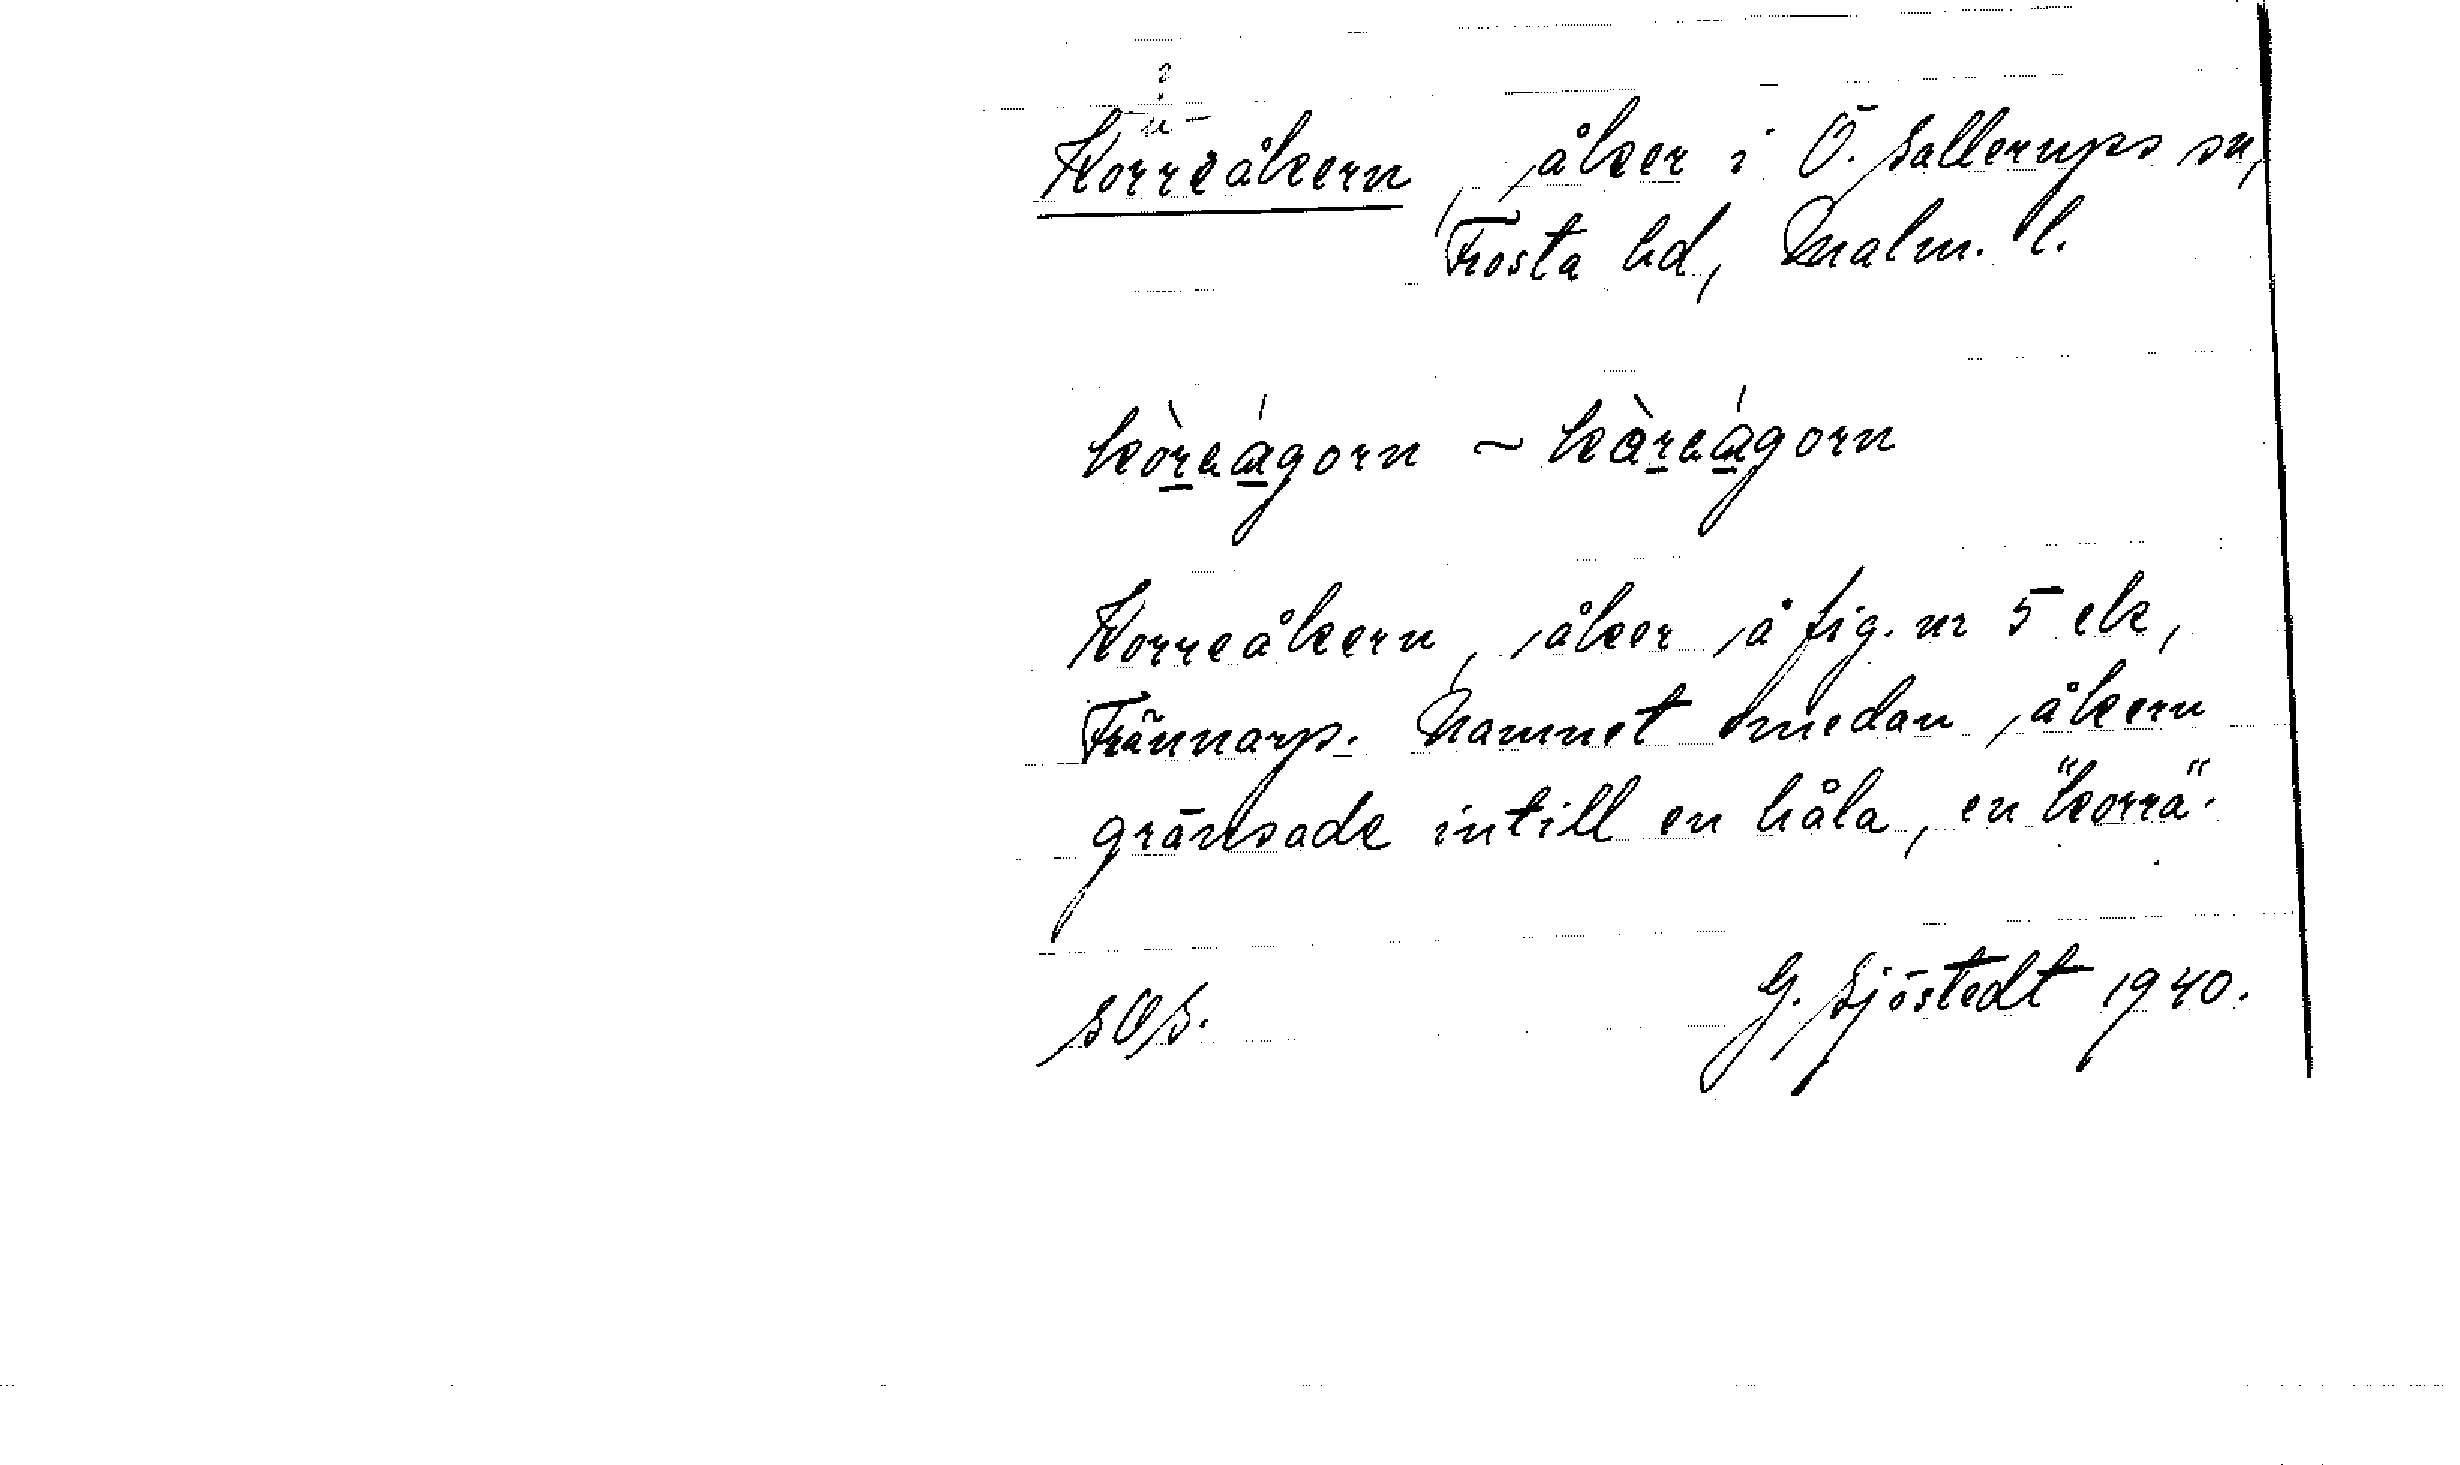 ?
-u-
Korreåkern, åker i Ö. Sallerups sn,
Frosta hd, Malm. l.
kòrəágorn ~ kàrəágorn
Korreåkern, åker å fig. nr 5 ek,
Frännarp. Namnet emedan åkern
gränsade intill en håla, en "korra".
SOS. G. Sjöstedt 1940.